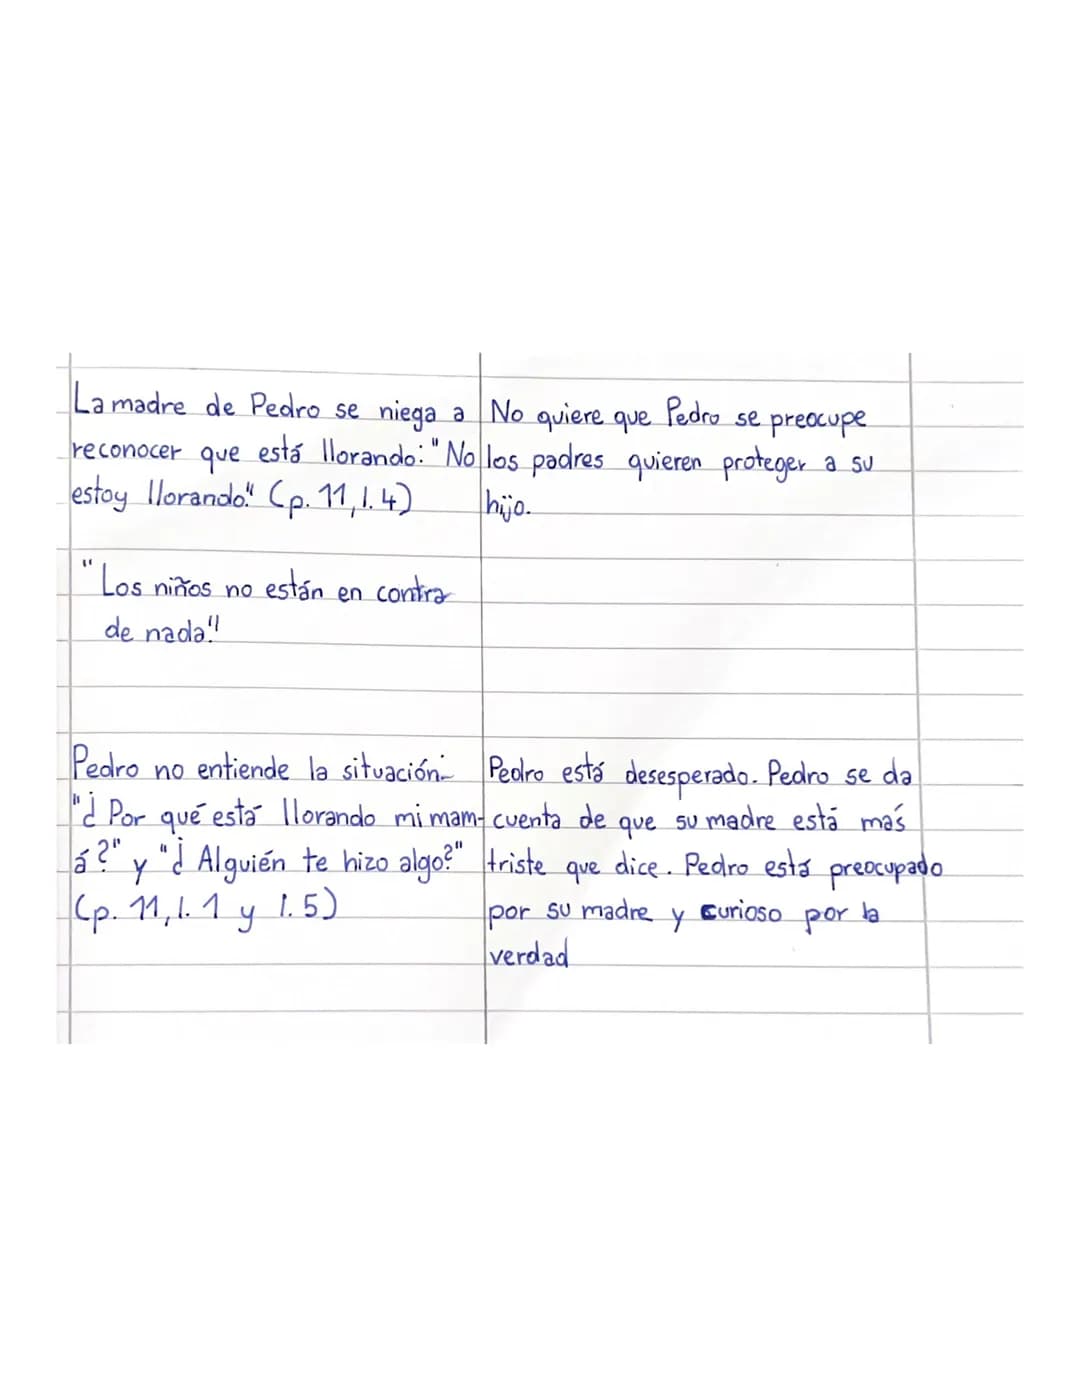 La madre de Pedro se niega a
reconocer que está llorando: "No
estoy llorando." (p. 11, l. 4)
No quiere que Pedro se preocupe
los padres quieren proteger a su
hijo.
"Los niños no están en contra
de nada."
Pedro no entiende la situación:
"¿Por qué está llorando mi mam-
á?" y "¿Alguién te hizo algo?"
(p. 11, l. 1 y l. 5)
Pedro está desesperado. Pedro se da
cuenta de que su madre está más
triste que dice. Pedro está preocupado
por su madre y curioso por la
verdad